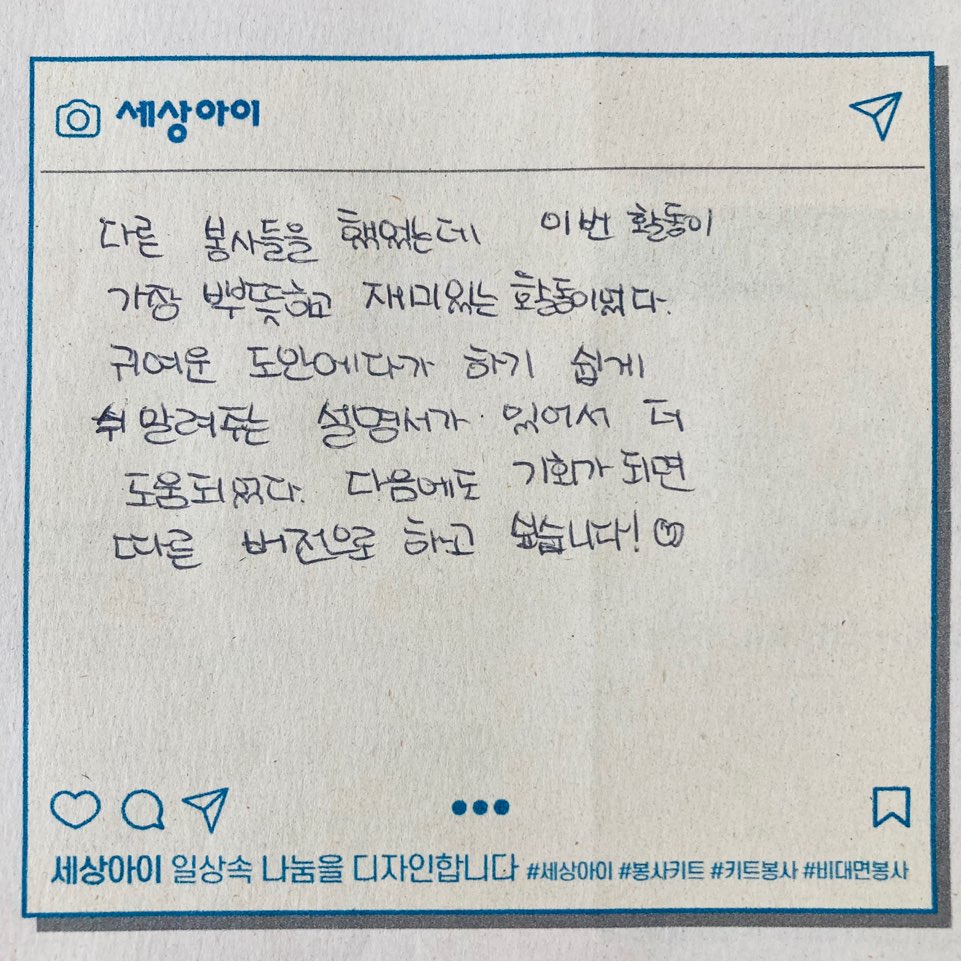 세상아이
다른 봉사들을 했었는데 이번 활동이
가장 뿌뜻하고 재미있는 활동이었다.
귀여운 도안에다가 하기 쉽게
알려주는 설명서가 있어서 더
도움되었다. 다음에도 기회가 되면
따른 버전으로 하고 싶습니다!
세상아이 일상속 나눔을 디자인합니다 #세상아이 #봉사키트 #키트봉사 #비대면봉사